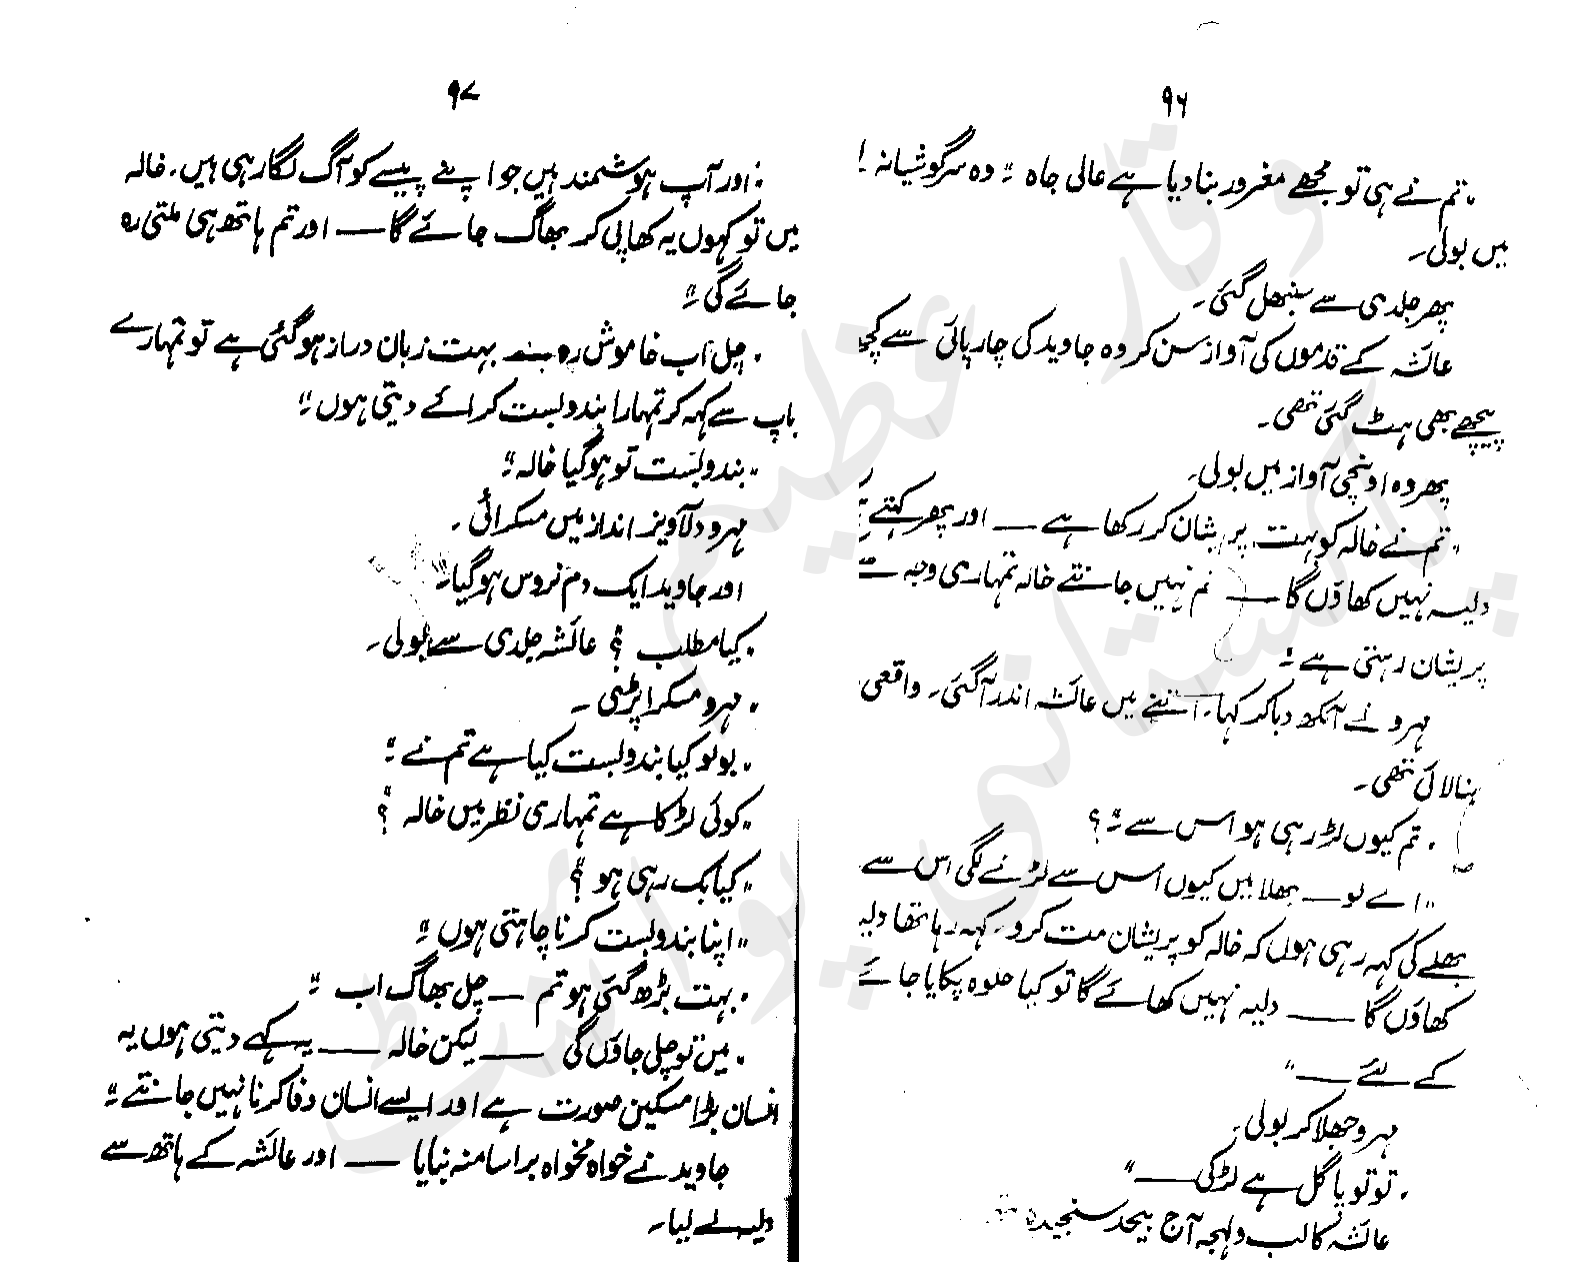 ۹۶
"تم نے ہی تو مجھے مغرور بنا دیا ہے عالی جاہ" وہ سرگوشیانہ!
میں بولی۔
پھر جلدی سے سنبھل گئی۔
عائشہ کے قدموں کی آواز سن کر وہ جاوید کی چارپائی سے کچھ
پیچھے بھی ہٹ گئی تھی۔
پھر وہ اونچی آواز میں بولی۔
"تم نے خالہ کو بہت پریشان کر رکھا ہے ـــ اور پھر کہتے
دلیہ نہیں کھاؤں گا ـــ تم نہیں جانتے خالہ تمہاری وجہ سے
پریشان رہتی ہے"
مہرو نے آنکھ دبا کر کہا۔ اتنے میں عائشہ اندر آ گئی۔ واقعی
بنا لائی تھی۔
"تم کیوں لڑ رہی ہو اس سے"؟
"اے لو ـــ بھلا میں کیوں اس سے لڑنے لگی اس سے
بھلے کی کہہ رہی ہوں کہ خالہ کو پریشان مت کرو۔ کہہ رہا تھا دلیہ
کھاؤں گا ـــ دلیہ نہیں کھائے گا تو کیا حلوہ پکایا جائے
کے لئے ـــ"
مہرو جھلا کر بولی۔
"تو تو پاگل ہے لڑکی ـــ"
عائشہ کا لب و لہجہ آج بیحد سنجیدہ
۹۷
"اور آپ ہوشمند ہیں جو اپنے پیسے کو آگ لگا رہی ہیں۔ خالہ
میں تو کہوں یہ کھا پی کر بھاگ جائے گا ـــ اور تم ہاتھ ہی ملتی رہ
جائے گی"
"چل اب خاموش رہ بہت زبان دراز ہو گئی ہے تو تمہارے
باپ سے کہہ کر تمہارا بندوبست کرائے دیتی ہوں"
"بندوبست تو ہو گیا خالہ"
مہرو دلآویز انداز میں مسکرائی۔
اور جاوید ایک دم نروس ہو گیا۔
"کیا مطلب؟ عائشہ جلدی سے بولی۔
"مہرو مسکرا پڑی۔
"بولو کیا بندوبست کیا ہے تم نے"
"کوئی لڑکا ہے تمہاری نظر میں خالہ؟"
"کیا بک رہی ہو؟"
"اپنا بندوبست کرنا چاہتی ہوں"
"بہت بڑھ گئی ہو تم ـــ چل بھاگ اب"
"میں تو چلی جاؤں گی ـــ لیکن خالہ ـــ یہ کہے دیتی ہوں یہ
انسان بڑا مسکین صورت ہے اور ایسے انسان وفا کرنا نہیں جانتے"
جاوید نے خواہ مخواہ برا سا منہ بنایا ـــ اور عائشہ کے ہاتھ سے
دلیہ لے لیا۔
وقار عظیم
پاکستانی پوائنٹ